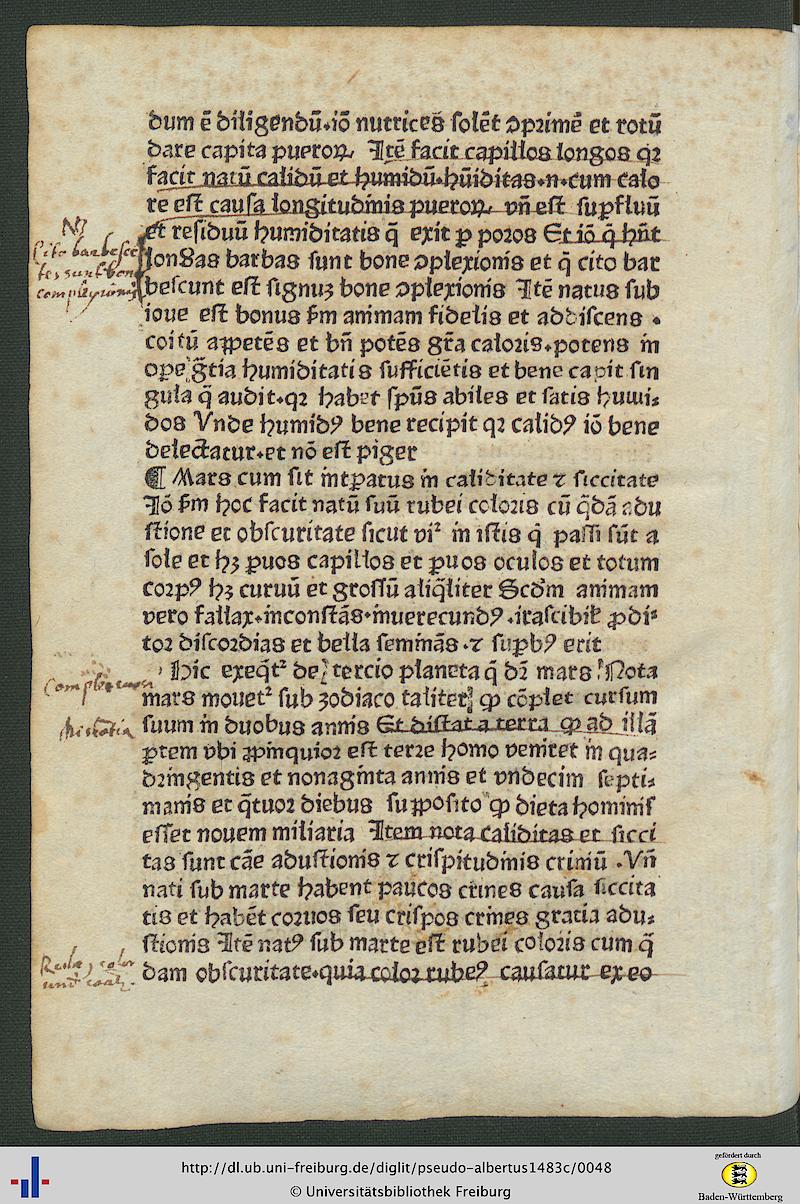 dum ē diligendū·iō nutrices̄ ſolēt ꝯprimē et rotū
dare capita pueroꝝ Itē facit capillos longos qꝛ
facit natū calidū et humidū·hūiditas·n·cum calo
re est cauſa longitudinis pueroꝝ vn̄ eſt ſuꝑfluū
et reſiduū humiditatis q̄ exit ꝑ poꝛos Et iō q̄ hn̄t
longas barbas ſunt bone ꝯplexionis et q̄ cito bar
beſcunt eſt ſignuꝫ bone ꝯplexionis Itē natus ſub
ioue eſt bonus ẜm animam fidelis et addiſcens ·
coitū aꝑpetēs et bn̄ potēs gr̄a caloꝛis·potens in
oꝑe ḡtia humiditatis ſufficiētis et bene capit ſin
gula q̄ audit·qꝛ habet ſpūs abiles et ſatis humi⸗
dos Vnde humidꝰ bene recipit qꝛ calidꝰ iō bene
delectatur·et nō eſt piger
¶ Mars cum ſit intꝑatus in caliditate ⁊ ſiccitate
Iō ẜm hoc facit natū ſuū rubei coloꝛis cū q̄dā adu
ſtione et obſcuritate ſicut vi² in iſtis q̄ paſſi ſūt a
ſole et hꝫ ꝑuos capillos et ꝑuos oculos et totum
coꝛpꝰ hꝫ curuū et groſſū aliq̄liter Scd̄m animam
vero fallax·inconſtās·inuerecundꝰ·iraſcibil̄ ꝓdi⸗
toꝛ diſcoꝛdias et bella ſeminās·⁊ ſuꝑbꝰ erit
Hic exeq̄t² de tercio planeta q̄ dꝛ mars Nota
mars mouet² ſub zodiaco taliter ꝙ cōplet curſum
suum in duobus annis Et diſtat a terra ꝙ ad illā
ꝑtem vbi ꝓpinquior eſt terre homo veniret in qua⸗
dꝛingentis et nonaginta annis et vndecim ſepti⸗
manis et q̄tuoꝛ diebus ſuꝑpoſito ꝙ dieta hominiſ
eſſet nouem miliaria Item nota caliditas et ſicci
tas ſunt cāe aduſtionis ⁊ criſpitudinis criniū ·Vn̄
nati ſub marte habent paucos crines cauſa ſiccita
tis et habēt coꝛuos ſeu criſpos crines gratia adu⸗
ſtionis Itē natꝰ ſub marte eſt rubei coloꝛis cum q̄
dam obſcuritate·quia coloꝛ rubeꝰ cauſatur ex eo
Cito barbesce
tes sunt bon
complexionis
Complexion
Distātia
color
http://dl.ub.uni-freiburg.de/diglit/pseudo-albertus1483c/0048
© Universitätsbibliothek Freiburg
gefördert durch
Baden-Württemberg